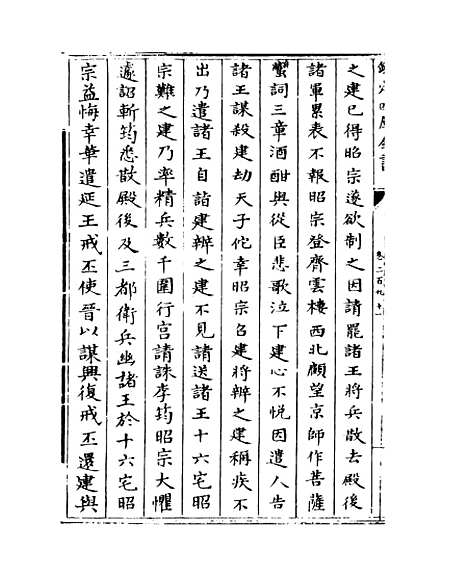 欽定四庫全書
卷二百九十
之建已得昭宗遂欲制之因請罷諸王將兵散去殿後
諸軍累表不報昭宗登齊雲樓西北顧望京師作菩薩
蠻詞三章酒酣與從臣悲歌泣下建心不悦因遣人告
諸王謀殺建劫天子佗幸昭宗召建將辨之建稱疾不
出乃遣諸王自詣建辨之建不見請送諸王十六宅昭
宗難之建乃率精兵數千圍行宫請誅李筠昭宗大懼
遽詔斬筠悉散殿後及三都衛兵幽諸王於十六宅昭
宗益悔幸華遣延王戒丕使晉以謀興復戒丕還建與